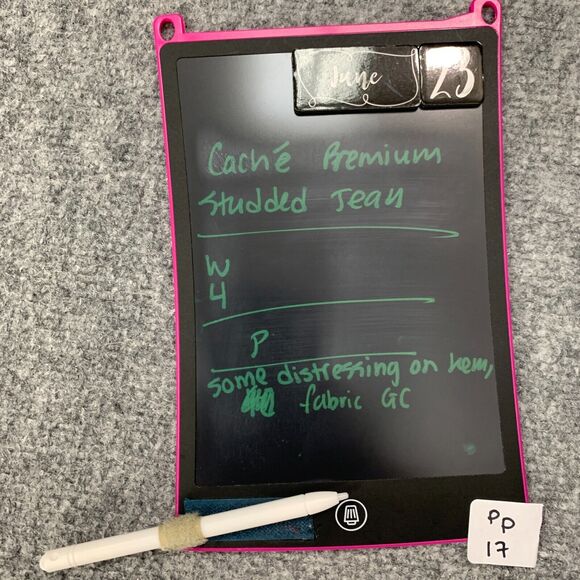 June 23
Caché Premium
Studded Jean
W
4
P
some distressing on hem,
fabric GC
PP
17